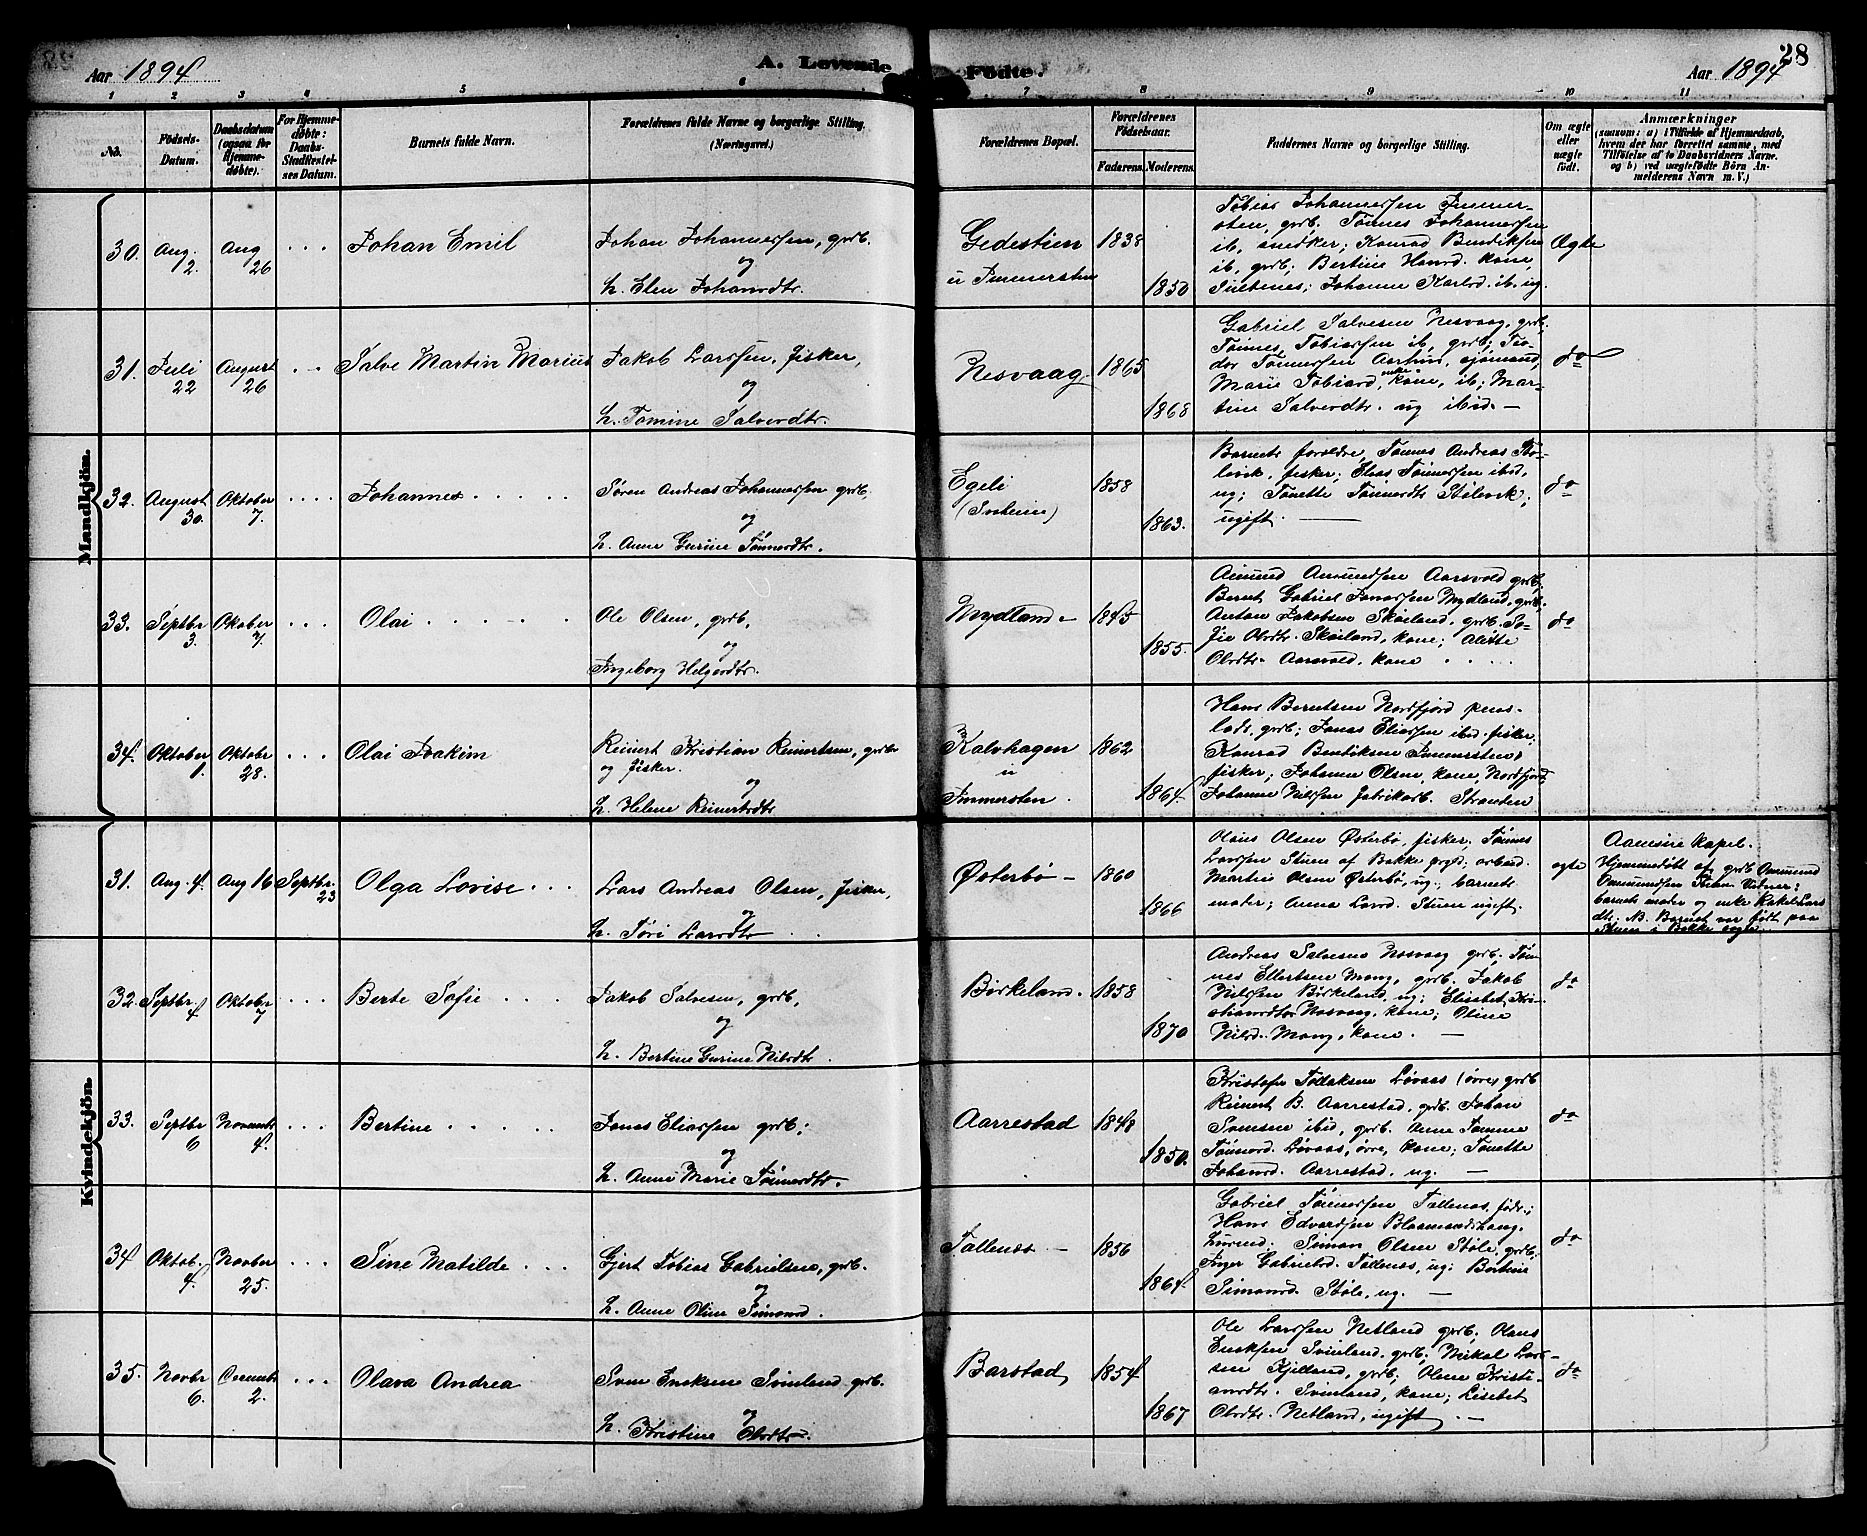 Aar 1894
A. Levende
Fødte.
Aar 1894
28
1 2 3 4 5 6 7 8 9 10 11
No.
Fødsels-
Datum.
Daabsdatum
(ogsaa for
Hjemme-
døbte).
For Hjemme-
døbte:
Daabs-
Stadfæstel-
ses Datum.
Barnets fulde Navn.
Forældrenes fulde Navne og borgerlige Stilling.
(Næringsvei.)
Forældrenes Bopæl.
Forældrenes
Fødselsaar.
Faderens. Moderens.
Faddernes Navne og borgerlige Stilling.
Om ægte
eller
uægte
født.
Anmærkninger
(saasom: a) i Tilfælde af Hjemmedaab,
hvem der har forrettet samme, med
Tilføielse af to Daabsvidners Navne,
og b) ved uægtefødte Børn An-
melderens Navn m. V.)
Mandkjön.
30. Aug. 2. Aug 26 . . . Johan Emil
Johan Johannessen, grdb.
og
h. Elen Johansdtr.
Gedestien
u Immersten
1838
1850
Tobias Johannessen Immer-
sten, grdb. Tønnes Johannessen
ib, snedker; Konrad Bendiksen
ib, grdb; Bertine Hansd. kone,
Johanne Karlsd. ib. ug.
Ægte
31. Juli 22 August 26 . . Salve Martin Marius
Jakob Larssen, fisker,
og
h. Tomine Salvesdtr.
Nesvaag
1865
1868
Gabriel Salvesen Nesvaag, grdb.
Tønnes Tobiassen ib, grdb; Teo-
dor Tønnessen sjømand,
Marie Tobiasd, enke, kone, ib; Mar-
tine Salvesdtr. ug ibid. —
do
32. August 30. Oktober 7. . . . . Johannes . . . . .
Søren Andreas Johannessen grdb.
og
h. Anne Gurine Tønnesdtr.
Egeli
1858
1863.
Barnets forældre, Tønnes Andreas Stø-
levik, fisker; Elias Tønnessen ibid,
ug; Tonette Tønnesdtr Stølevik,
ugift. —
do
33. Septbr 3. Oktober 7. . . . Olai . . . . .
Ole Olsen, grdb,
og
Ingeborg Helgesdtr.
Mydland -
1845
1855.
Amund Amundsen Aarsvold grdb,
Bernt Gabriel Jonassen Mydland, grdb.
Anton Jakobsen Skaaland, grdb. So-
fie Olsdtr. Skaaland, kone; Alette
Olsdtr. Aarsvold, kone . . . . .
do
34. Oktober 1. Oktobr 28. . . . Olai Joakim
Reinert Kristian Reinertsen, grdbr
og fisker.
og
h. Helene Reinertsdtr
Kalvhagen
u
Immersten .
1862
1864.
Hans Berntsen Nordfjord pens-
lods, grdb; Jonas Eliassen ibid. fisker;
Konrad Bendiksen Immersten,
fisker; Johanne Olsen, kone, Nordfjord,
Johanne Nilssen fabrikarb. Stranden
Kvindekjön.
31. Aug. 4. Aug 16 Septbr. 23 Olga Lovise . . .
Lars Andreas Olsen, fisker,
og
h. Tøri Larsdtr . .
Østerbø -
1860
1866
Olaus Olsen Østerbø, fisker, Tønnes
Larssen Stuen af Bakke prgld; arbmd.
Martin Olsen Østerbø, ug; barnets
moder; Anna Larsd. Stuen ugift.
ægte
Aamsire kapel.
Hjemmedøbt af grdb Ommund
Ommundsen Stuen Vidner:
barnets moder og enke Rakel Lars
dtr. NB. Barnet var født paa
Stuen i Bakke sogn.
32. Septbr. 4 Oktober 7 . . . Berte Sofie . . . .
Jakob Salvesen, grdb,
og
h. Bertine Gurine Nilsdtr.
Birkeland.
1858
1870
Andreas Salvesen Nesvaag grdb, Tøn-
nes Ellertsen Mong, grdb. Jakob
Nilssen Birkeland, ug; Elisabet Kri-
stiansdtr Nesvaag, kone; Oline
Nilsd. Mong, kone. —
do
33. Septbr 6 Novembr 4. . . . Bertine . . . . .
Jonas Eliassen grdb;
og
h. Anne Marie Tønnesdtr.
Aarrestad
1848
1850.
Kristofer Tollaksen Løvaas (øvre) grdb
Reinert B. Aarrestad, grdb. Johan
Svensen ibid, grdb. Anne Tomine
Tønnesd. Løvaas, øvre, kone; Tonette
Johansd. Aarrestad, ug. —
do
34 Oktob. 4. Novber 25. . . . Sine Matilde . . .
Gjert Tobias Gabrielsen, grdb.
og
h. Anne Oline Simonsd.
Tallenæs -
1856
1864
Gabriel Tønnessen Tallenæs, føder;
Hans Edvardsen Blaamandshaug,
Simon Olsen Støle, grdb;
Inger Gabrielsd. Tallenæs, ug; Bertine
Simonsd. Støle, ug. —
do
35. Novbr 6. Decembr 2. . . . Olava Andrea
Sven Eriksen Svinland grdb.
og
h. Kristine Olsdtr.
Barstad
1854
1867
Ole Larssen Netland grdb. Olaus
Eriksen Svinland, grdb; Mikal Lars-
sen Kjelland, grdb; Oline Kristi-
ansdtr. Svinland, kone; Lisebet
Olsdtr. Netland, ugift. —
do